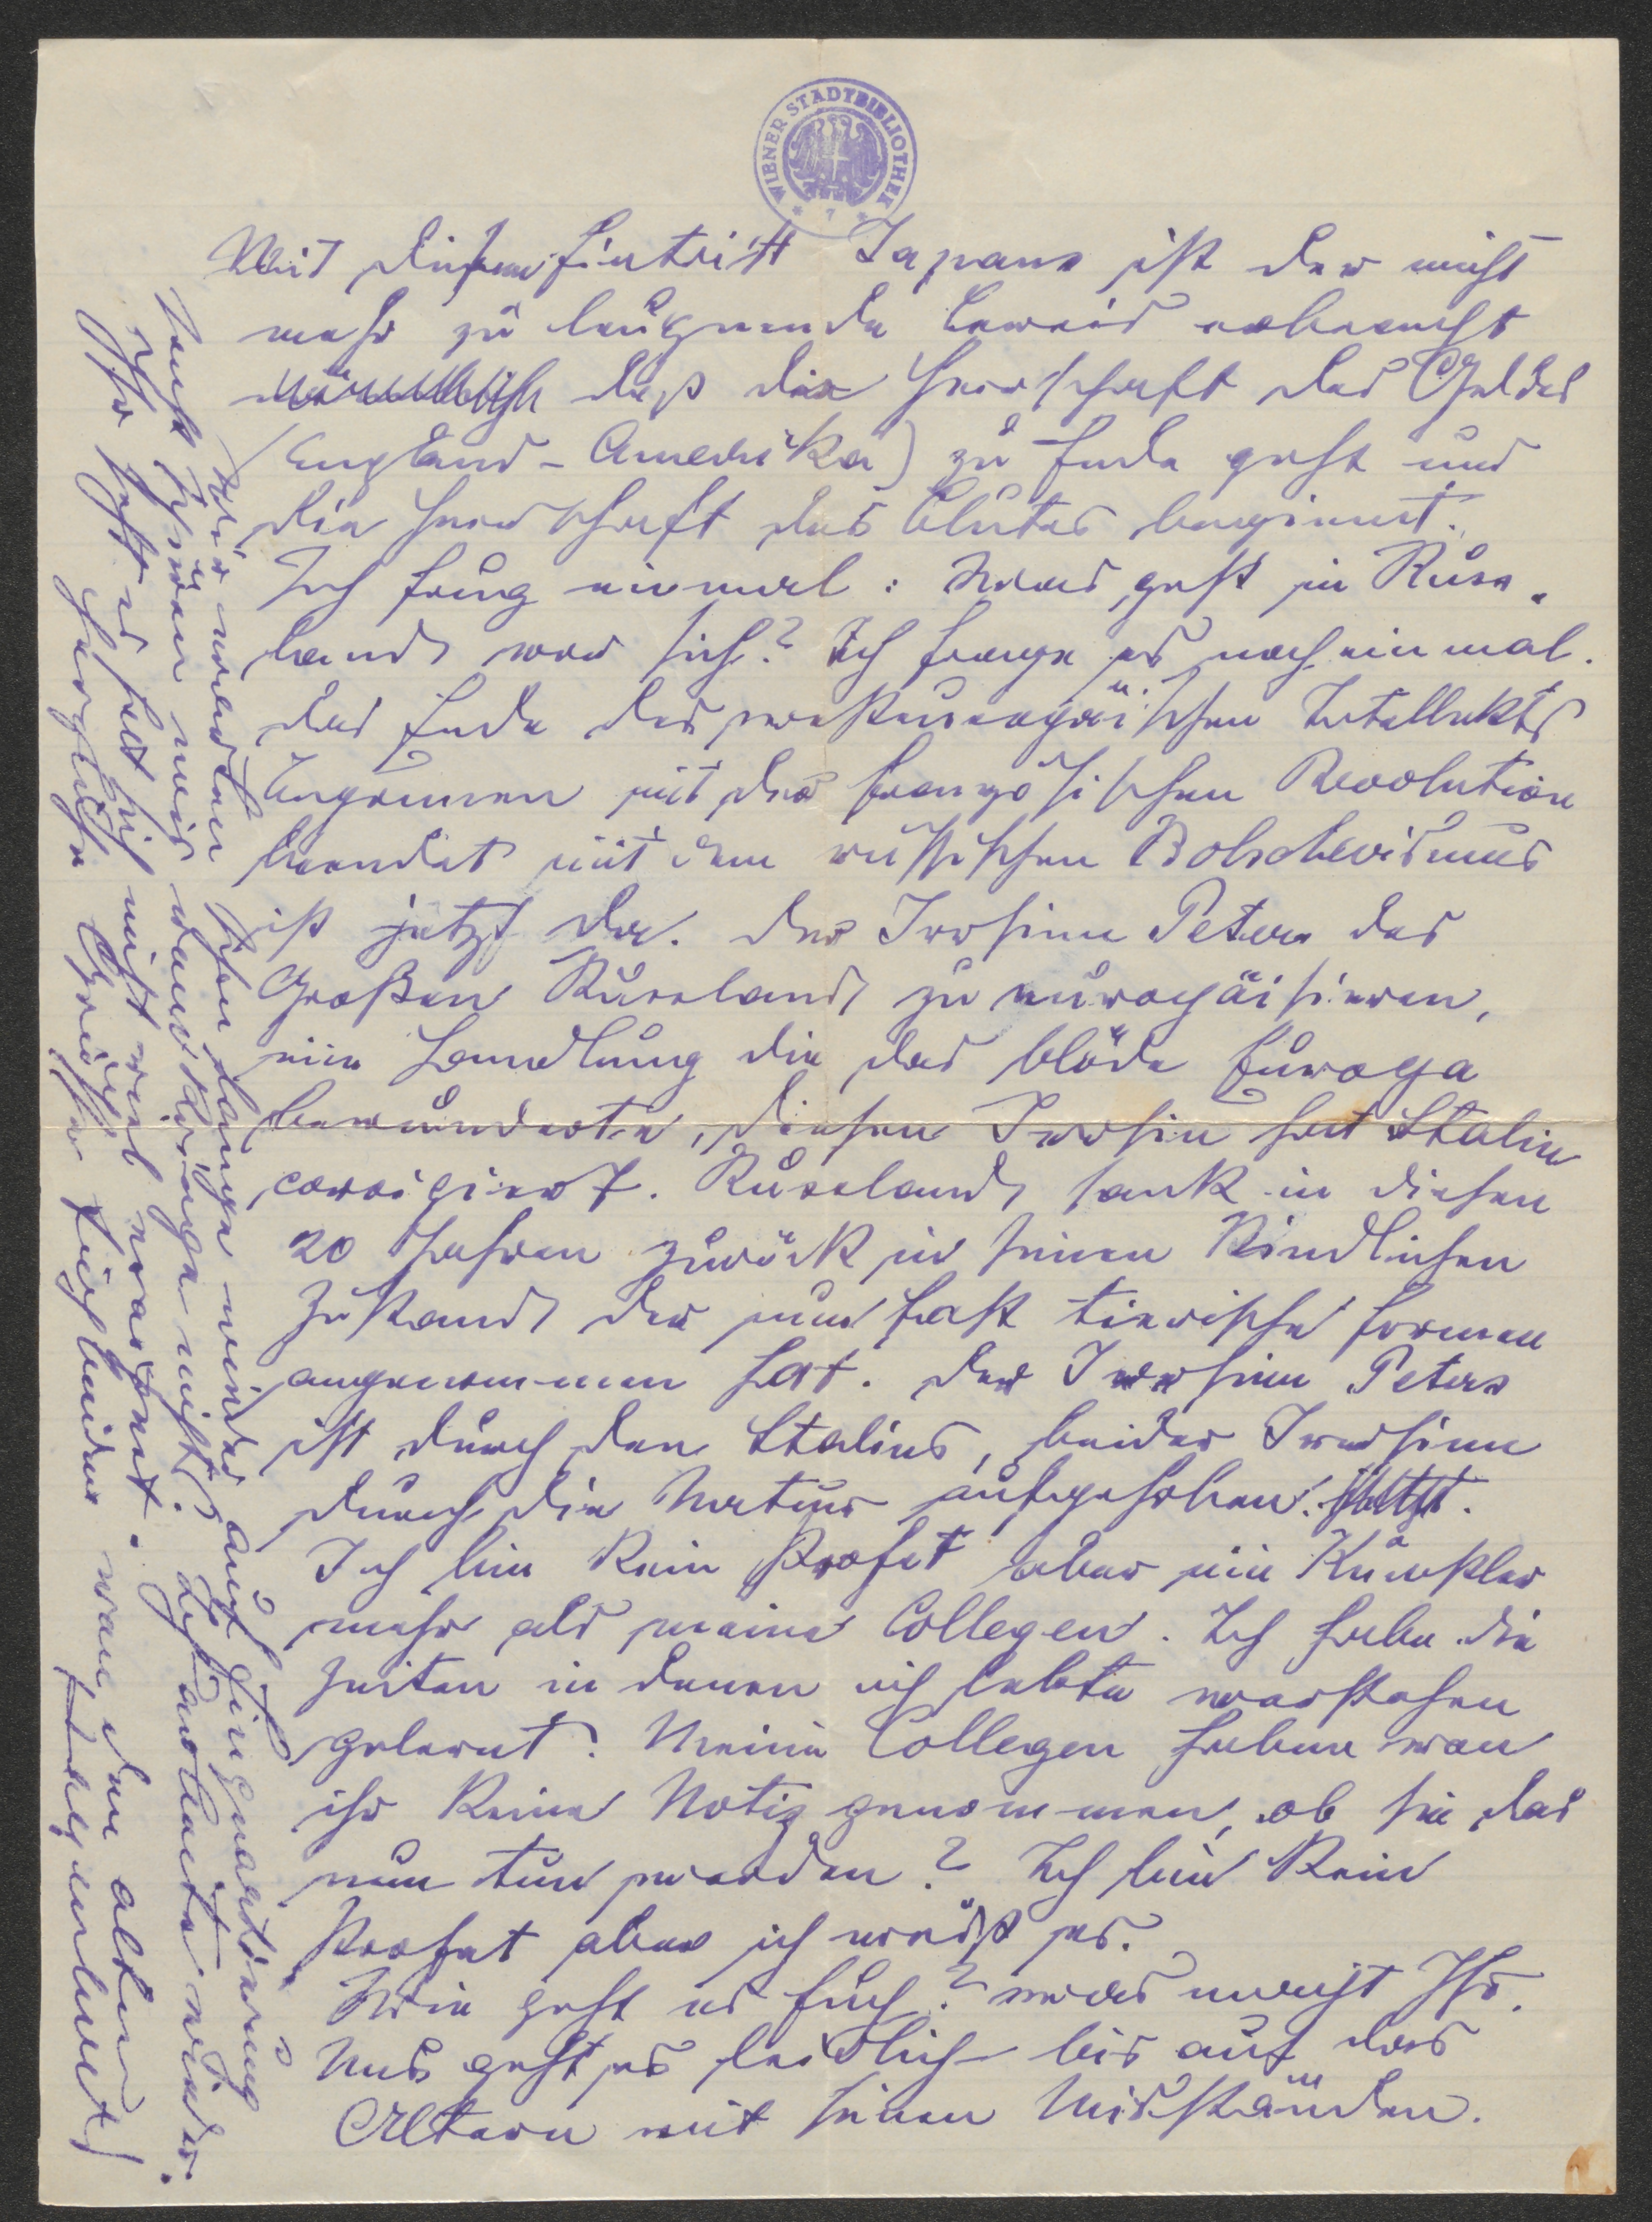 WIENER STADTBIBLIOTHEK
Mit diesem Eintritt Japans ist der nicht
mehr zu leugnende Beweis erbracht
nämlich daß die Herrschaft des Geldes
(England-Amerika) zu Ende geht und
die Herrschaft des Blutes beginnt.
Ich frug einmal: Was geht in Russ-
land vor sich? Ich frage es noch einmal.
Das Ende des westeuropäischen Intellekts
begonnen mit der französischen Revolution
beendet mit dem russischen Bolschevismus
ist jetzt da. Der Irrsinn Peters des
Großen Russland zu europäisieren,
eine Handlung die das blöde Europa
bewunderte, diesen Irrsin hat Stalin
corrigiert. Russland sank in diesen
20 Jahren zurück in seinen Kindlichen
Zustand der nun fast tierische Formen
angenommen hat. Der Irrsinn Peters
ist durch den Stalins, beider Irrsinn
durch die Natur aufgehoben.
Ich bin Kein Profet aber ein Künstler
mehr als meine Collegen. Ich habe die
Zeiten in denen ich lebte verstehen
gelernt. Meine Collegen haben von
ihr Keine Notiz genommen, ob sie das
nun tun werden? Ich bin Kein
Profet aber ich weiß es.
Wie geht es Euch? was macht Ihr.
Uns geht es leidlich bis auf das
Altern mit seinen Mißständen.
Wir warten schon lange wieder auf Einquartierung
sonst hören wir vom Kriege nichts. Ich arbeite wieder.
Ihr seht es hat sich nicht viel verändert.
Herzliche Grüße Euch beiden von den alten